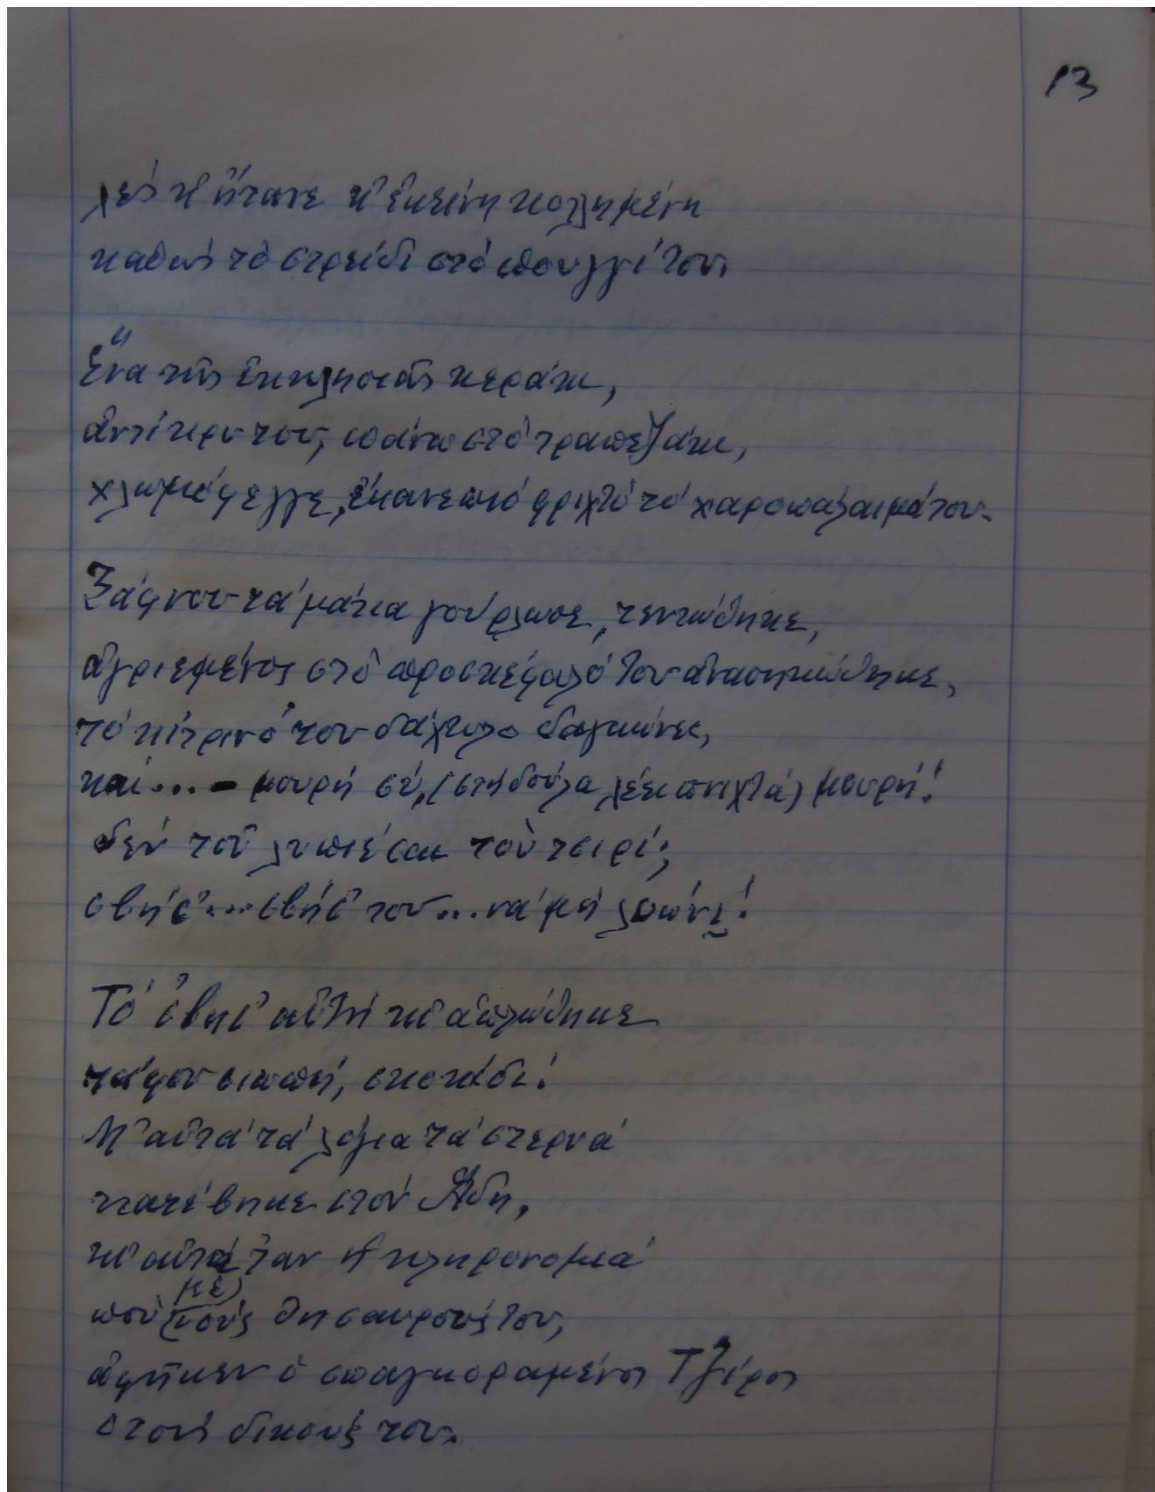 13
λὲς κ' ἤτανε κ' ἐκείνη κολλημένη
καθὼς τὸ στρείδι στὸ πουγγί του,
Ἕνα τῆς ἐκκλησιᾶς κεράκι,
ἀντίκρυ του, πάνω στὸ τραπεζάκι,
χλωμιὸ φεγγε, ἔκανε πιὸ φριχτὸ τὸ χαροπάλαιμά του.
Ξάφνου τὰ μάτια γούρλωσε, τεντώθηκε,
ἀγριεμένος στὸ προσκέφαλό του ἀνασηκώθηκε,
τὸ κίτρινό του δάχτυλο δαγκώνει,
καὶ... - μουρὴ σύ, (στὴ δούλα λέει πνιχτὰ) μουρή!
δὲν τοῦ λυπιέσαι τοῦ κερί;
σβήσ'... σβήσ' του... νὰ μὴ λυώνῃ!
Τὸ ἔσβησ' αὐτὴ κι' ἁπλώθηκε
τάφου σιωπή, σκοτάδι!
Μ' αὐτὰ τὰ λόγια τὰ στερνὰ
κατέβηκε στὸν Ἅδη,
κι' αὐτὰ ἦταν ἡ κληρονομιὰ
ποὺ (τοὺς θησαυρούς του,
μὲ)
ἀφῆκεν ὁ σπαγκοραμένος Τζίρος
στοὺς δικούς του.